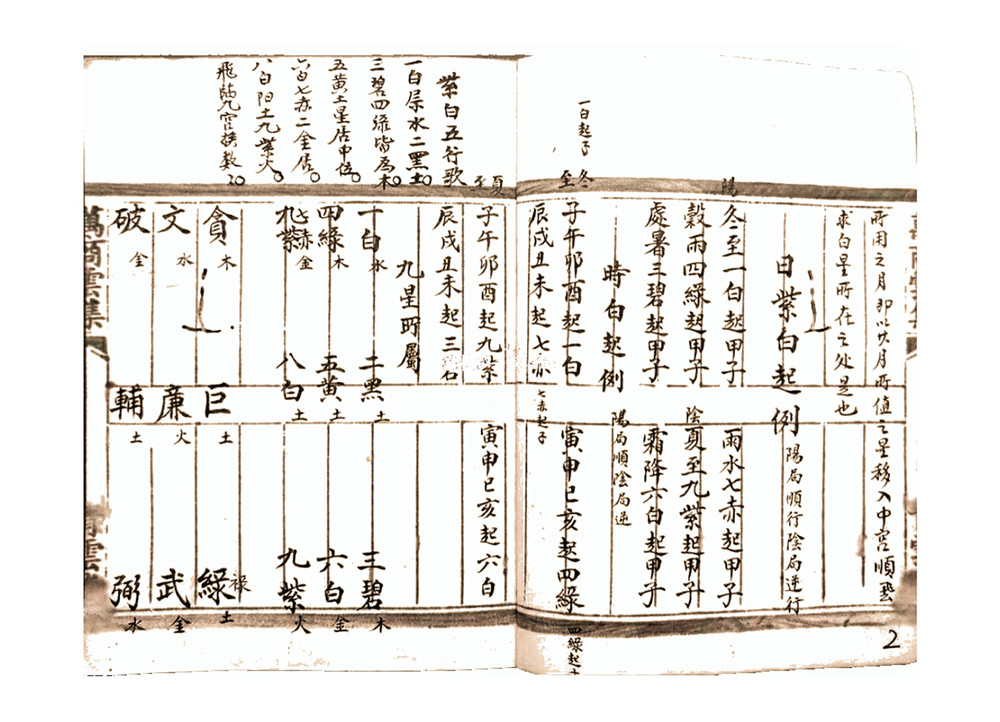 所用之月即以其月所值之星移入中宮順飛
求白星所在之处是也
日紫白起例 陽局順行陰局逆行
陽
冬至一白起甲子 雨水七赤起甲子
穀雨四綠起甲子 陰夏至九紫起甲子
處暑三碧起甲子 霜降六白起甲子
時白起例 陽局順陰局逆
一白起子
冬至
子午卯酉起一白 寅申巳亥起四綠
四綠起
辰戌丑未起七赤 七赤起子
夏至
子午卯酉起九紫 寅申巳亥起六白
辰戌丑未起三
九星所屬
一白水 二黑土 三碧木
四綠木 五黃土 六白金
七赤金 八白土 九紫火
貪木 巨土 祿土
文水 廉火 武金
破金 輔土 弼水
紫白五行歌
一白屬水二黑土
三碧四綠皆屬木
五黃土星居中位
六白七赤二金居
八白阳土九紫火
飛臨九宮挨數
2